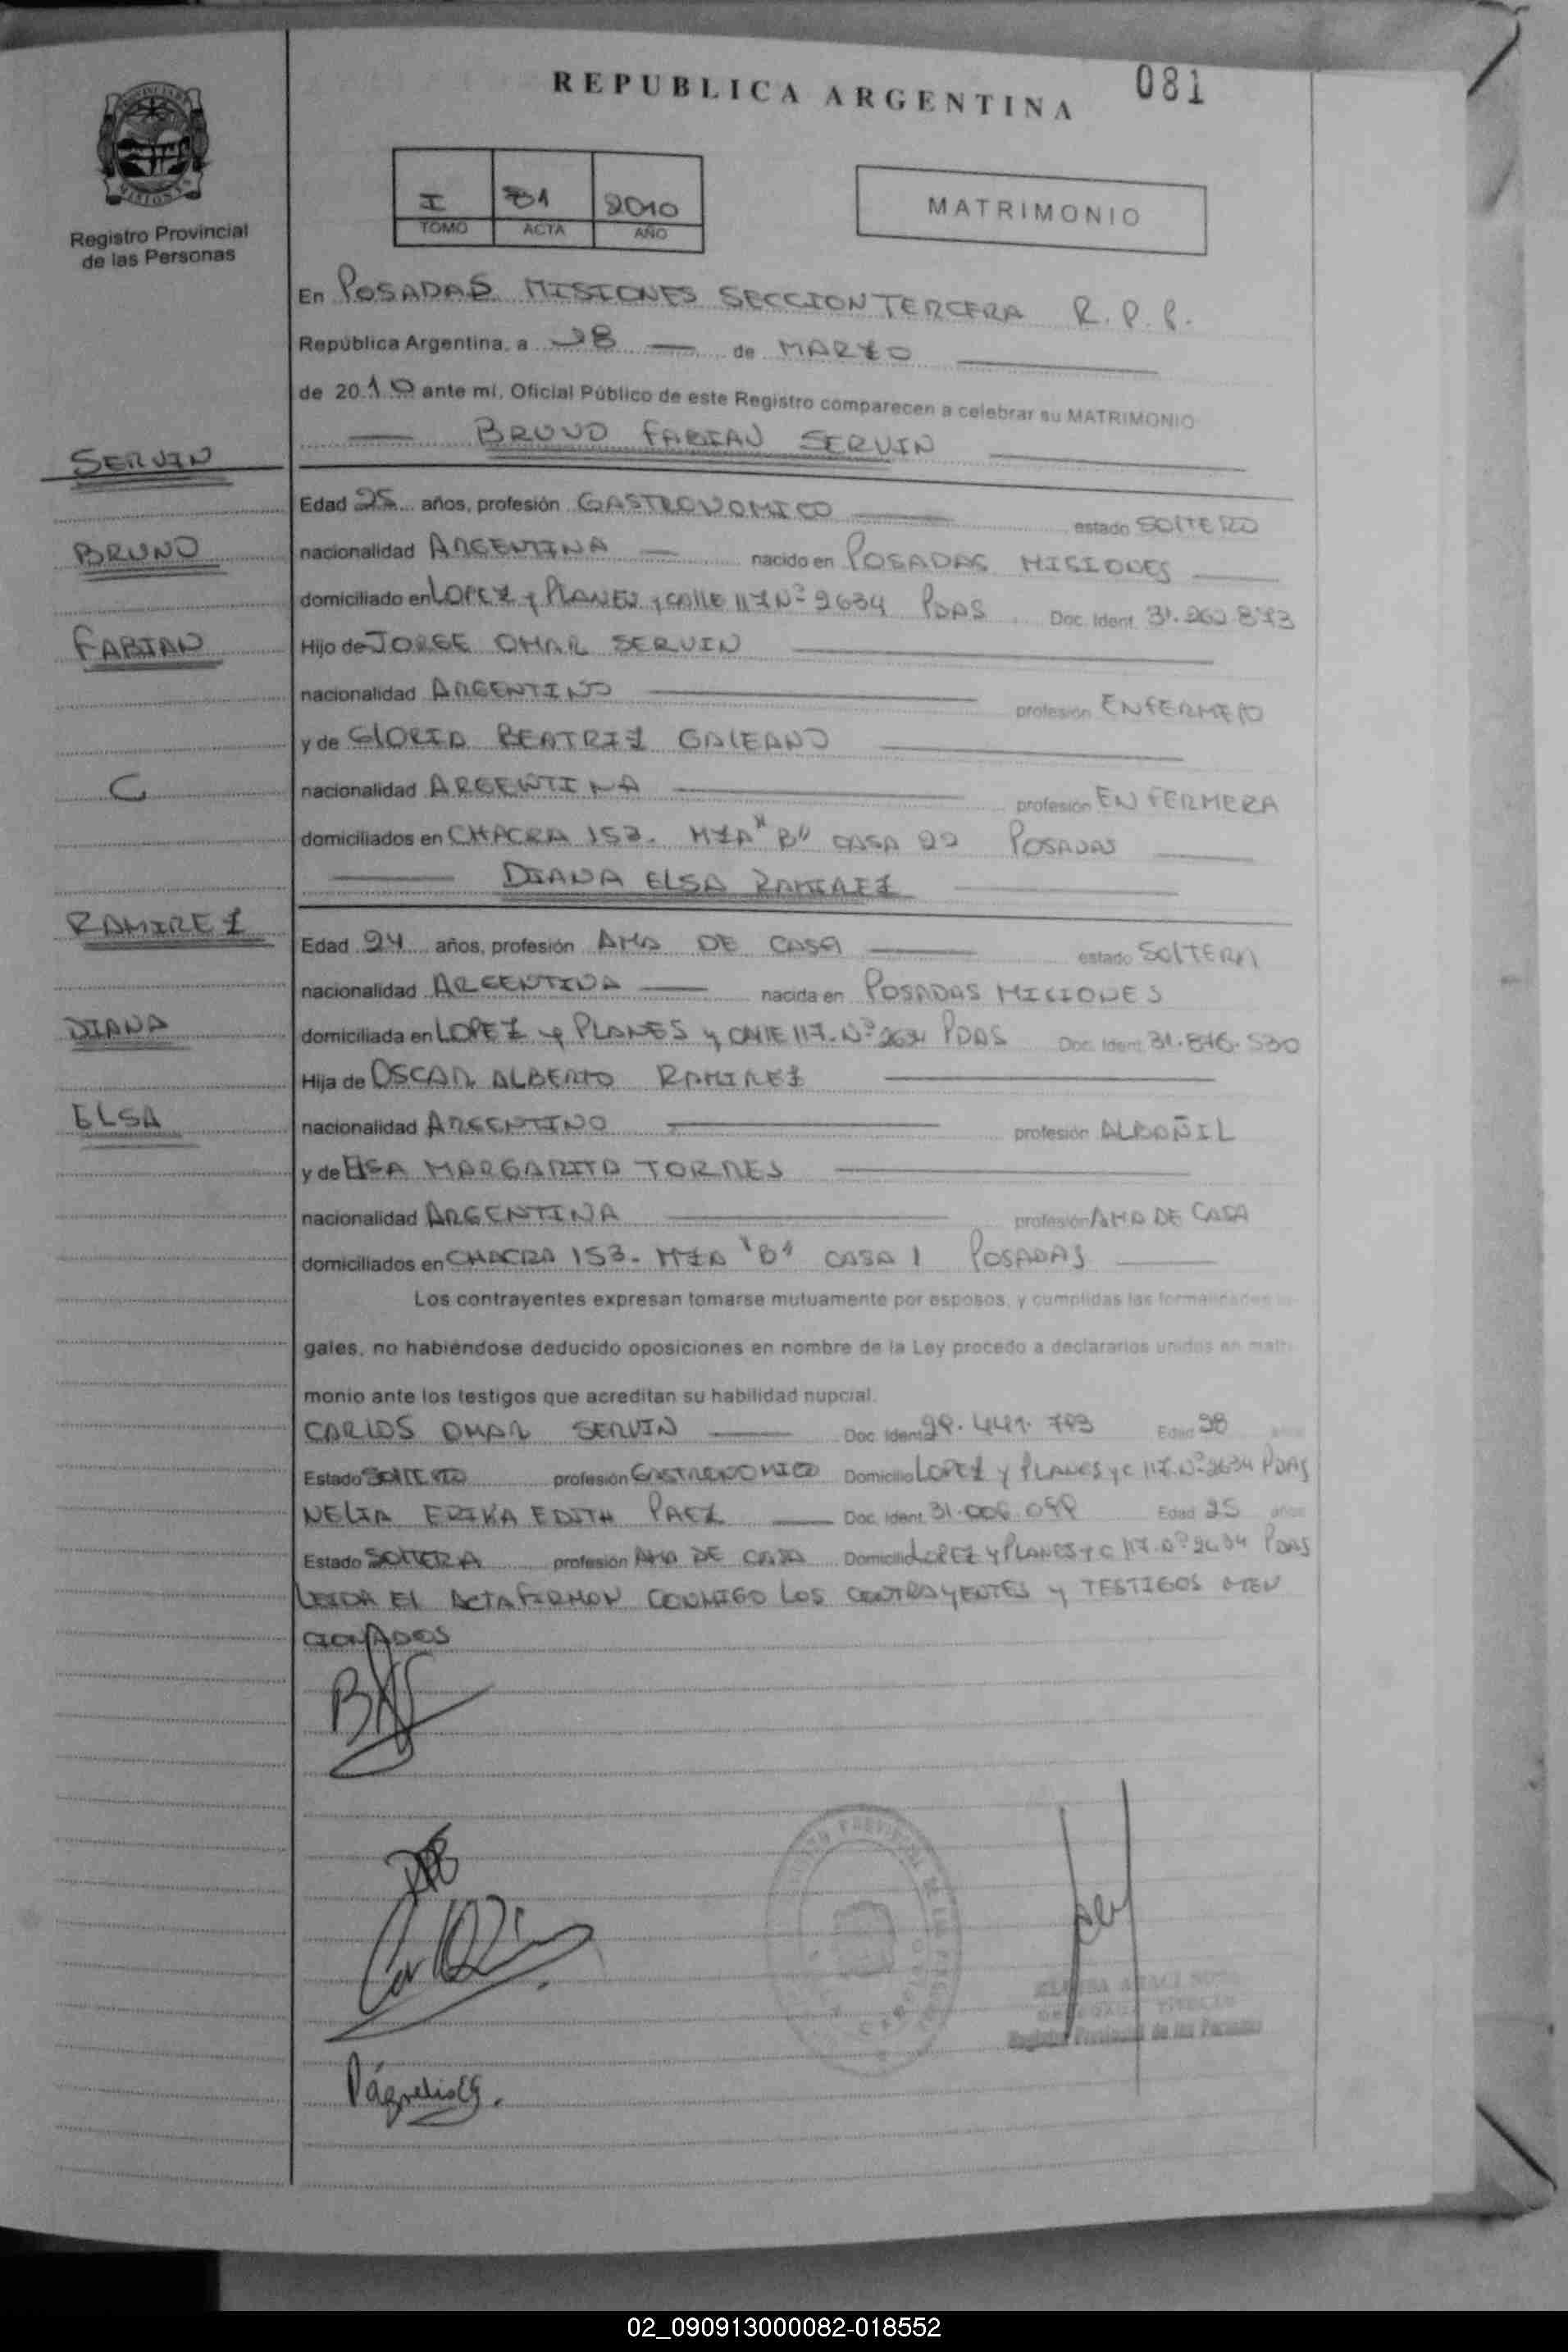 REPUBLICA ARGENTINA
081
Registro Provincial
de las Personas
I 81 2010
TOMO ACTA AÑO
MATRIMONIO
En POSADAS MISIONES SECCION TERCERA R. P. P.
República Argentina, a 28 de MARZO
de 2010 ante mí, Oficial Público de este Registro comparecen a celebrar su MATRIMONIO
BRUNO FABIAN SERVIN
SERVIN
Edad 25 años, profesión GASTRONOMICO estado SOLTERO
BRUNO
nacionalidad ARGENTINA nacido en POSADAS MISIONES
domiciliado en LOPEZ y PLANES y CALLE 117 Nº 2634 PDAS Doc. Ident. 31.262.873
FABIAN
Hijo de JORGE OMAR SERVIN
nacionalidad ARGENTINO profesión ENFERMERO
y de GLORIA BEATRIZ GALEANO
C
nacionalidad ARGENTINA profesión ENFERMERA
domiciliados en CHACRA 153. MZA "B" CASA 22 POSADAS
DIANA ELSA RAMIREZ
RAMIREZ
Edad 24 años, profesión AMA DE CASA estado SOLTERA
nacionalidad ARGENTINA nacida en POSADAS MISIONES
DIANA
domiciliada en LOPEZ y PLANES y CALLE 117. Nº PDAS Doc. Ident. 31.846.530
Hija de OSCAR ALBERTO RAMIREZ
ELSA
nacionalidad ARGENTINO profesión ALBAÑIL
y de ELSA MARGARITA TORRES
nacionalidad ARGENTINA profesión AMA DE CASA
domiciliados en CHACRA 153. MZA "B" CASA 1 POSADAS
Los contrayentes expresan tomarse mutuamente por esposos, y cumplidas las formalidades le-
gales, no habiéndose deducido oposiciones en nombre de la Ley procedo a declararlos unidos en matri-
monio ante los testigos que acreditan su habilidad nupcial.
CARLOS OMAR SERVIN Doc. Ident. 29.441.793 Edad 28 años
Estado SOLTERO profesión GASTRONOMICO Domicilio LOPEZ y PLANES y C 117. Nº 2634 PDAS
NELIA ERIKA EDITH PAEZ Doc. Ident. 31.006.099 Edad 25 años
Estado SOLTERA profesión AMA DE CASA Domicilio LOPEZ y PLANES y C 117. Nº 2634 PDAS
LEIDA EL ACTA FIRMAN CONMIGO LOS CONTRAYENTES y TESTIGOS MEN
CIONADOS
Registro Provincial de las Personas
02_090913000082-018552